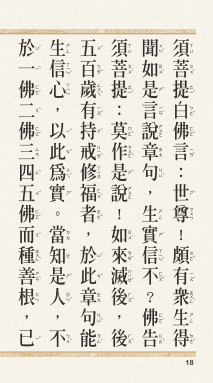 須菩提白佛言：世尊！頗有衆生得
聞如是言說章句，生實信不？佛告
須菩提：莫作是說！如來滅後，後
五百歲有持戒修福者，於此章句能
生信心，以此爲實。當知是人，不
於一佛二佛三四五佛而種善根，已
18